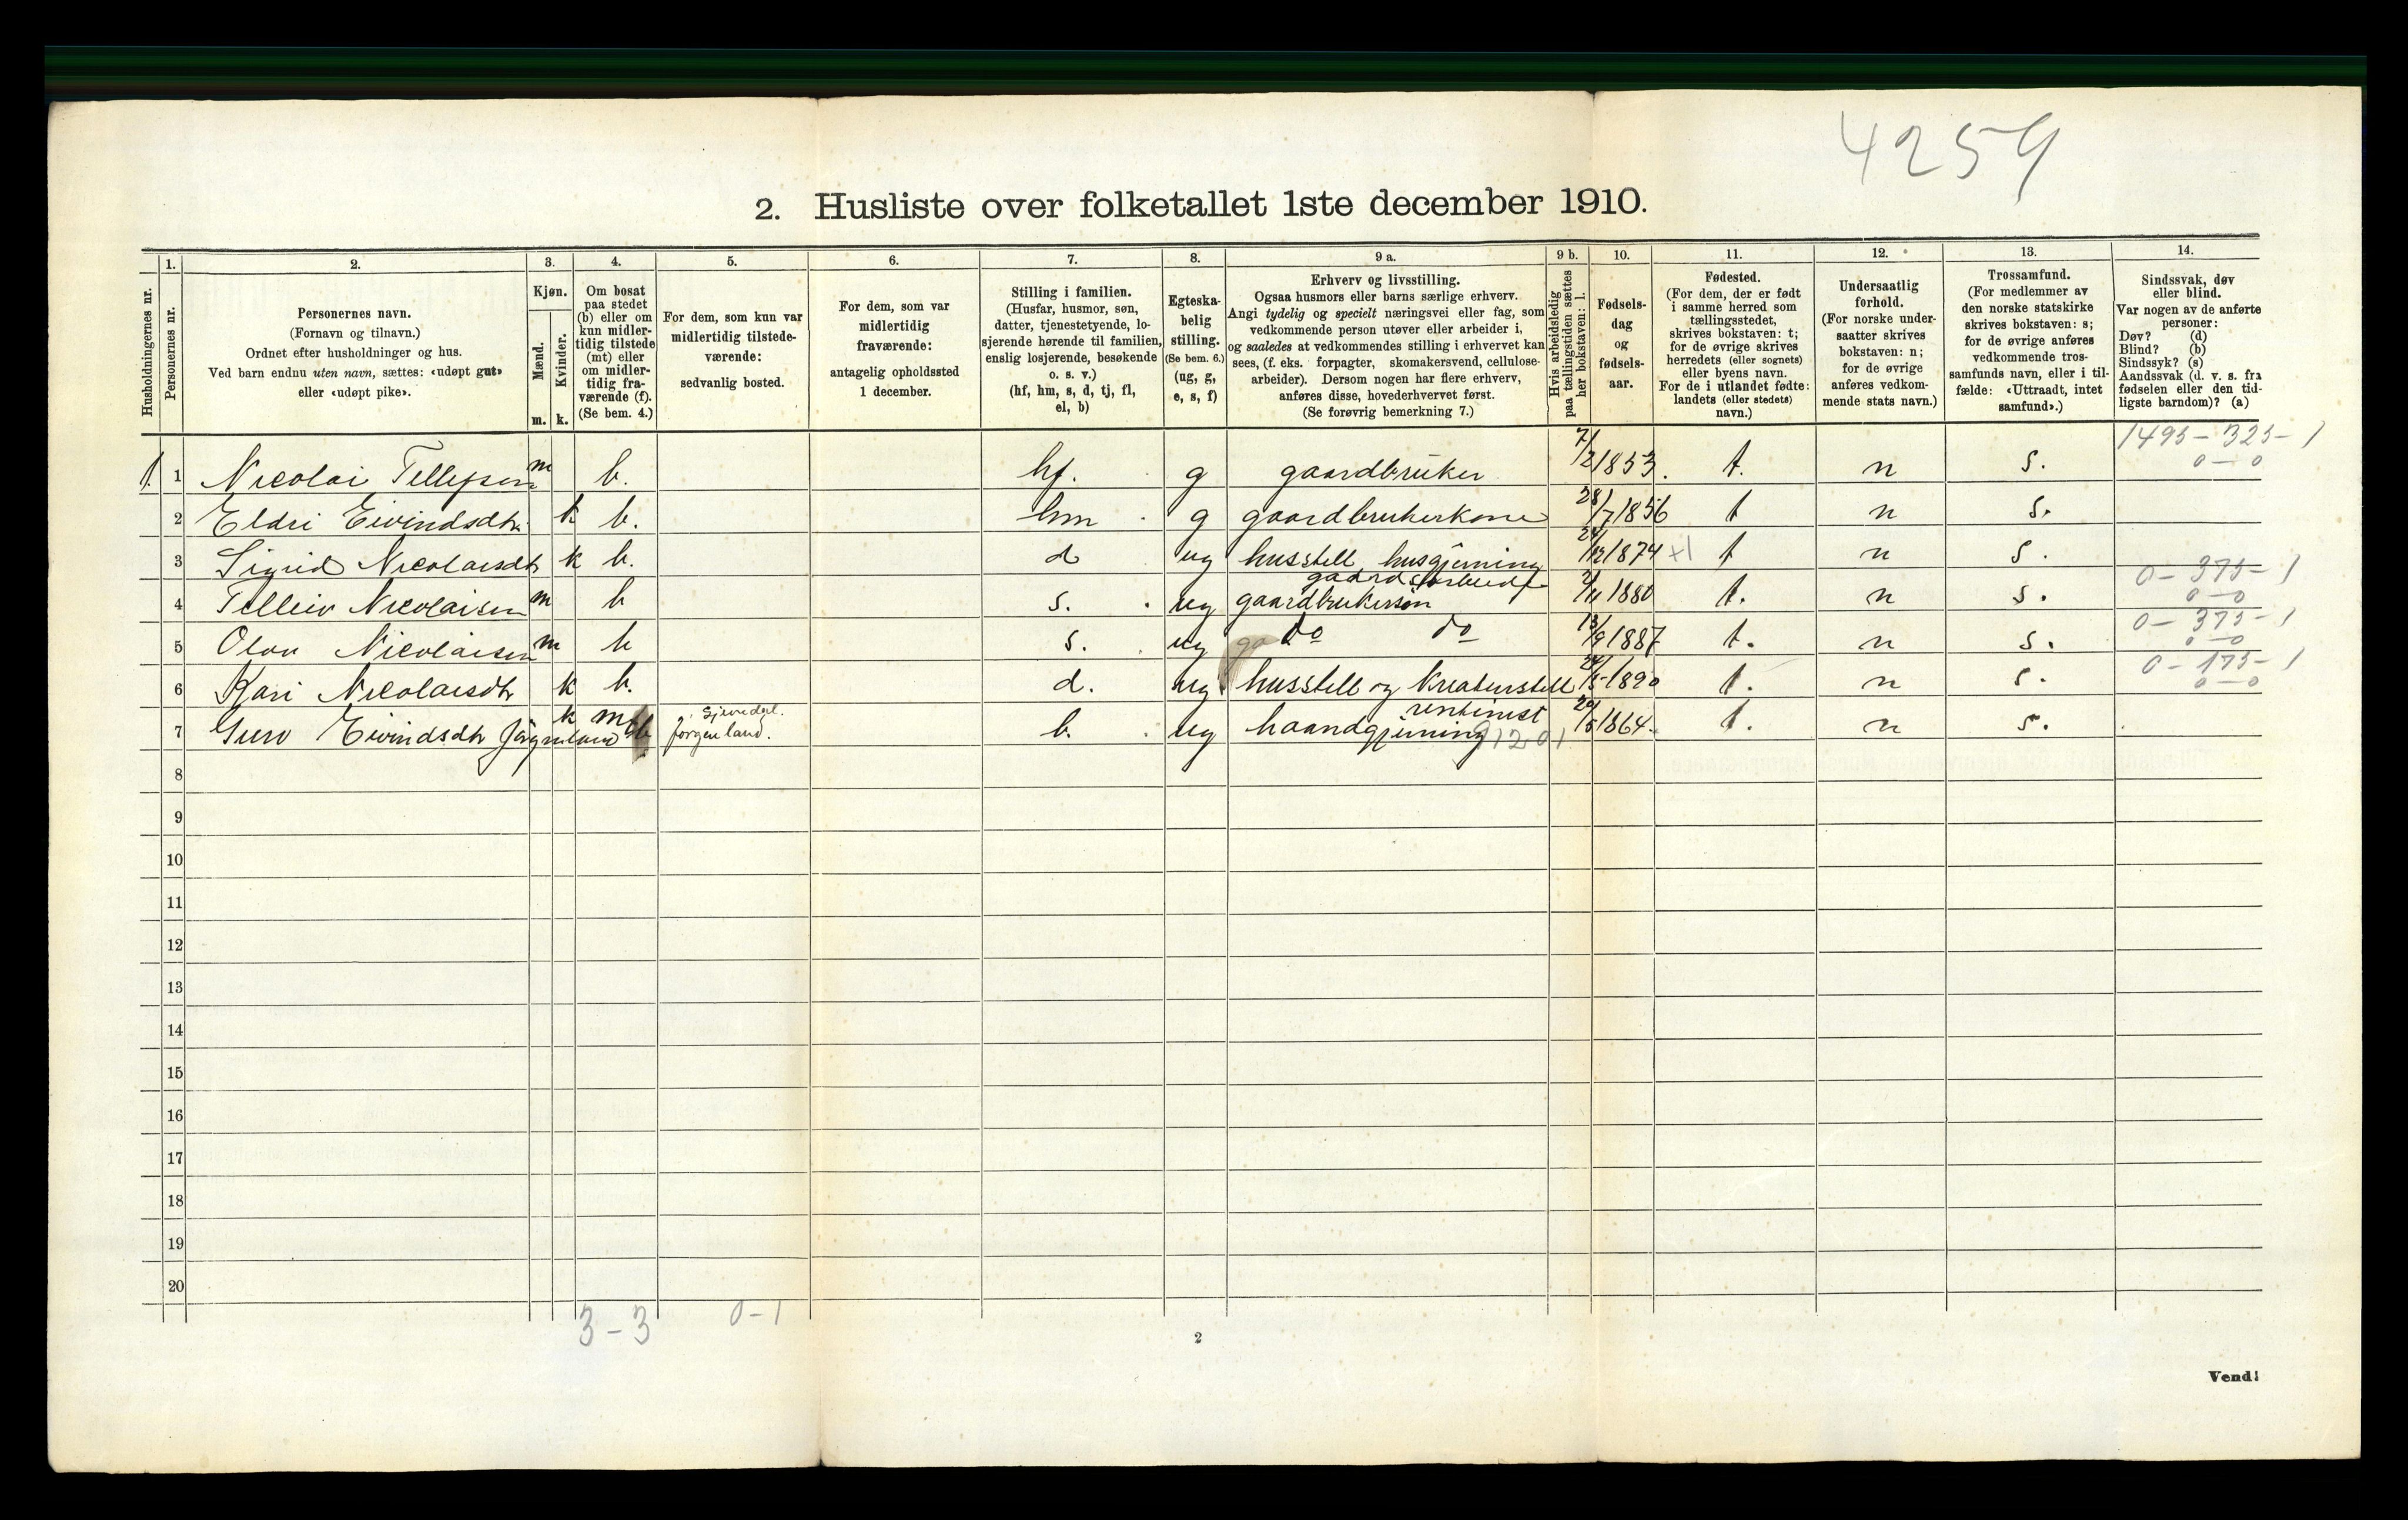 4259
2. Husliste over folketallet 1ste december 1910.
Husholdningernes nr.
1.
Personernes nr.
2.
Personernes navn.
(Fornavn og tilnavn.)
Ordnet efter husholdninger og hus.
Ved barn endnu uten navn, sættes: «udøpt gut»
eller «udøpt pike».
3.
Kjøn.
Mænd.
Kvinder.
m. k.
4.
Om bosat
paa stedet
(b) eller om
kun midler-
tidig tilstede
(mt) eller
om midler-
tidig fra-
værende (f).
(Se bem. 4.)
5.
For dem, som kun var
midlertidig tilstede-
værende:
sedvanlig bosted.
6.
For dem, som var
midlertidig
fraværende:
antagelig opholdssted
1 december.
7.
Stilling i familien.
(Husfar, husmor, søn,
datter, tjenestetyende, lo-
sjerende hørende til familien,
enslig losjerende, besøkende
o. s. v.)
(hf, hm, s, d, tj, fl,
el, b)
8.
Egteska-
belig
stilling.
(Se bem. 6.)
(ug, g,
e, s, f)
9 a.
Erhverv og livsstilling.
Ogsaa husmors eller barns særlige erhverv.
Angi tydelig og specielt næringsvei eller fag, som
vedkommende person utøver eller arbeider i,
og saaledes at vedkommendes stilling i erhvervet kan
sees, (f. eks. forpagter, skomakersvend, cellulose-
arbeider). Dersom nogen har flere erhverv,
anføres disse, hovederhvervet først.
(Se forøvrig bemerkning 7.)
9 b.
Hvis arbeidsledig
paa tællingstiden sættes
her bokstaven: l.
10.
Fødsels-
dag
og
fødsels-
aar.
11.
Fødested.
(For dem, der er født
i samme herred som
tællingsstedet,
skrives bokstaven: t;
for de øvrige skrives
herredets (eller sognets)
eller byens navn.
For de i utlandet fødte:
landets (eller stedets)
navn.)
12.
Undersaatlig
forhold.
(For norske under-
saatter skrives
bokstaven: n;
for de øvrige
anføres vedkom-
mende stats navn.)
13.
Trossamfund.
(For medlemmer av
den norske statskirke
skrives bokstaven: s;
for de øvrige anføres
vedkommende tros-
samfunds navn, eller i til-
fælde: «Uttraadt, intet
samfund».)
14.
Sindssvak, døv
eller blind.
Var nogen av de anførte
personer:
Døv? (d)
Blind? (b)
Sindssyk? (s)
Aandssvak (d. v. s. fra
fødselen eller den tid-
ligste barndom)? (a)
1 1 Nicolai Tellefsen m b. hf. g gaardbruker 7/2 1853. t. n s. 1495-325-1 0-0
2 Eldri Eivindsdtr k b. hm g gaardbrukerkone 28/7 1856 t n s.
3 Sigrid Nicolaisdtr k b. d ug husstell husgjerning 24/12 1874 +1 t n s.
4 Telleiv Nicolaisen m b s. ug gaardbrukersøn gaardsarbeide /11 1880 t. n s. 0-375-1 0-0
5 Olav Nicolaisen m b s. ug do do 13/9 1887 t. n s. 0-375-1 0-0
6 Kari Nicolaisdtr k b. d. ug husstell og kreaturstell 24/5 1890 t. n s. 0-175-1 0-0
7 Guro Eivindsdtr k mt Gjevedal. b. ug haandgjerning rentenist 29/5 1864. t. n s.
8
9
10
11
12
13
14
15
16
17
18
19
20
3-3 0-1
2
Vend!